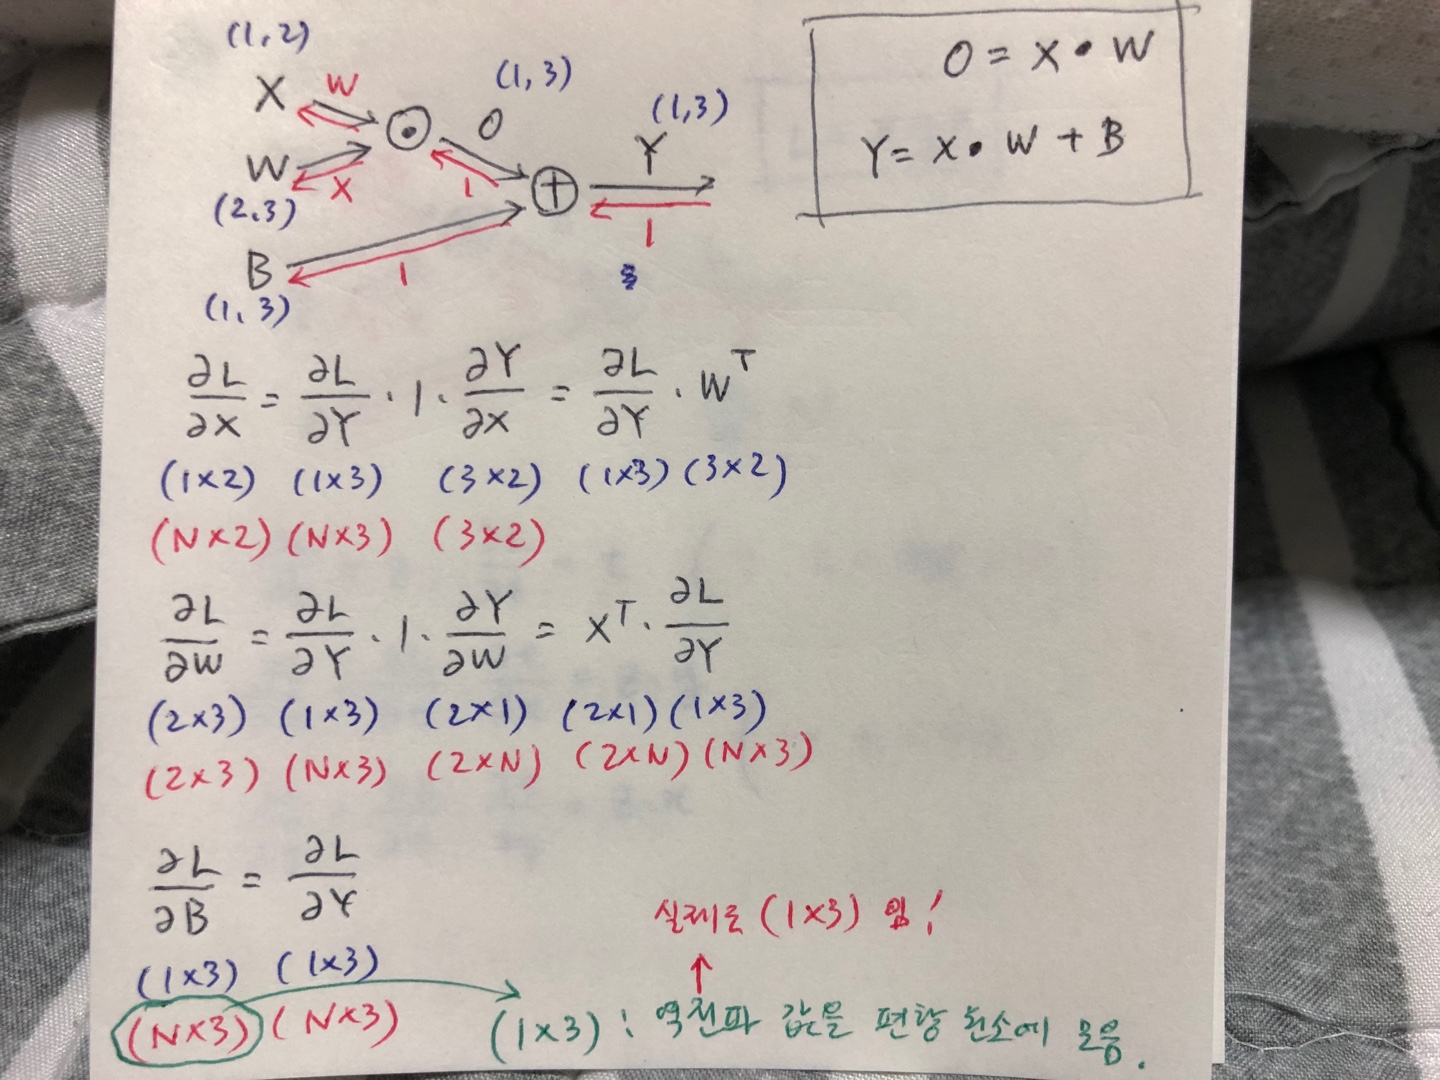 (1,2)
X W
(1,3)
O
(1,3)
Y
W X 1
(2,3)
1
B 1
(1,3)
O = X • W
Y = X • W + B
∂L/∂X = ∂L/∂Y · 1 · ∂Y/∂X = ∂L/∂Y · W^T
(1×2) (1×3) (3×2) (1×3) (3×2)
(N×2) (N×3) (3×2)
∂L/∂W = ∂L/∂Y · 1 · ∂Y/∂W = X^T · ∂L/∂Y
(2×3) (1×3) (2×1) (2×1) (1×3)
(2×3) (N×3) (2×N) (2×N) (N×3)
∂L/∂B = ∂L/∂Y
(1×3) (1×3)
(N×3) (N×3)
실제로 (1×3) 임!
(1×3) : 역전파 값을 편향 원소에 모음.